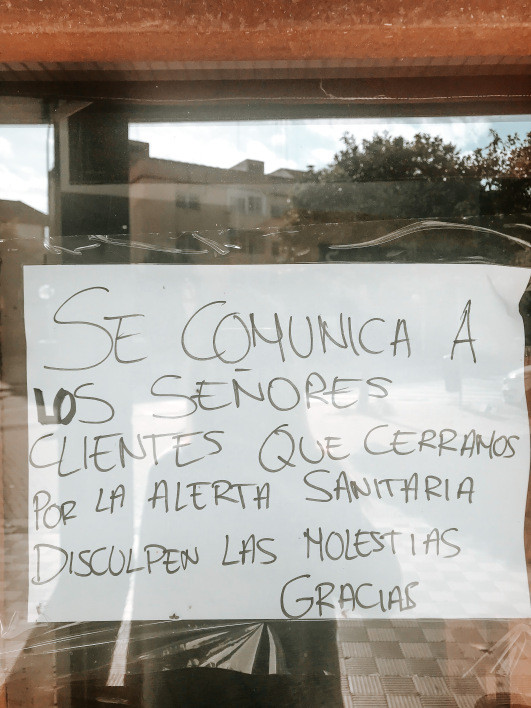 SE COMUNICA A
LOS SEÑORES
CLIENTES QUE CERRAMOS
POR LA ALERTA SANITARIA
DISCULPEN LAS MOLESTIAS
GRACIAS